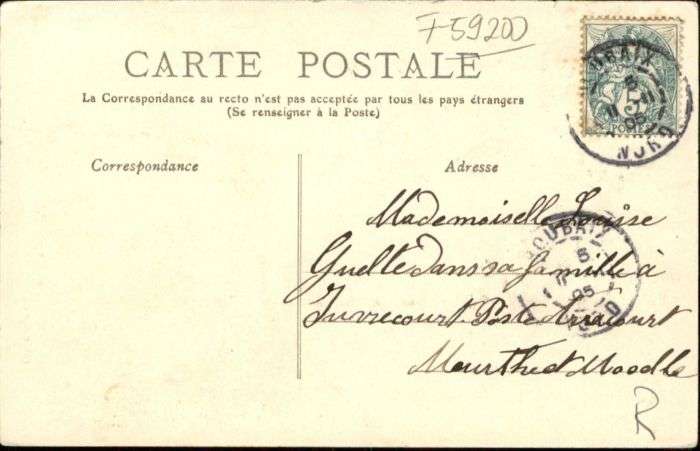 F-59200
CARTE POSTALE
La Correspondance au recto n'est pas acceptée par tous les pays étrangers
(Se renseigner à la Poste)
Correspondance
Adresse
Mademoiselle Louise
Guelle dans sa famille à
Juvrecourt Poste Arracourt
Meurthe et Moselle
ROUBAIX
5
05
NORD
5
POSTES
ROUBAIX
5
05
NORD
R